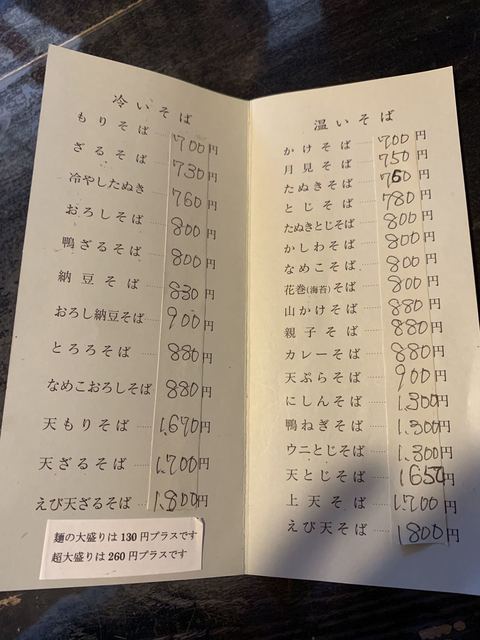 冷いそば
もりそば 700円
ざるそば 730円
冷やしたぬき 760円
おろしそば 800円
鴨ざるそば 800円
納豆そば 830円
おろし納豆そば 900円
とろろそば 880円
なめこおろしそば 880円
天もりそば 1,670円
天ざるそば 1,700円
えび天ざるそば 1,800円
麺の大盛りは130円プラスです
超大盛りは260円プラスです
温いそば
かけそば 700円
月見そば 750円
たぬきそば 750円
とじそば 780円
たぬきとじそば 800円
かしわそば 800円
なめこそば 800円
花巻(海苔)そば 800円
山かけそば 880円
親子そば 880円
カレーそば 880円
天ぷらそば 900円
にしんそば 1,300円
鴨ねぎそば 1,300円
ウニとじそば 1,300円
天とじそば 1650円
上天そば 1,700円
えび天そば 1800円